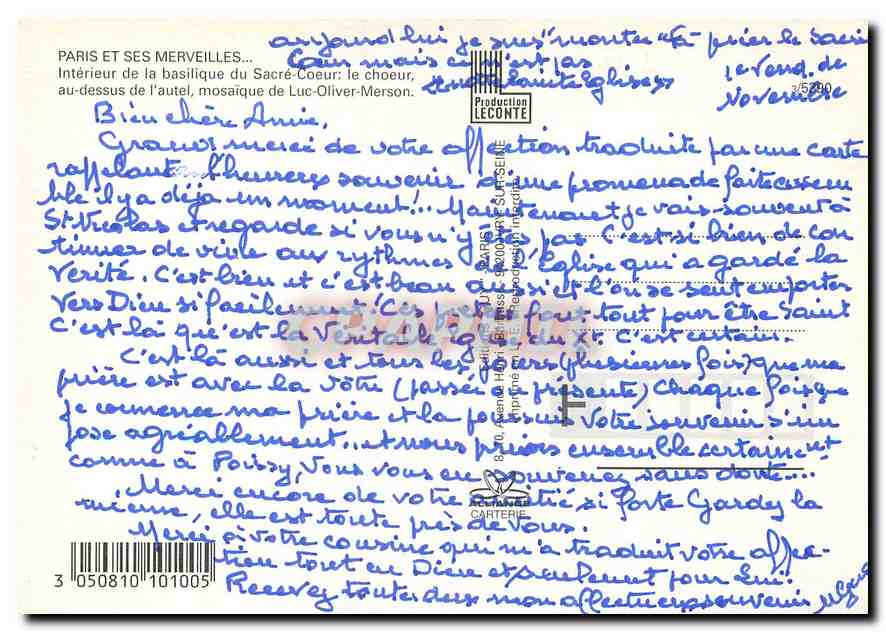 aujourd'hui je suis "montée" là prier le Sacré
Coeur mais ce n'est pas
notre Sainte Eglise
1e Vend. de
Novembre
PARIS ET SES MERVEILLES...
Intérieur de la basilique du Sacré-Coeur: le choeur,
au-dessus de l'autel, mosaïque de Luc-Oliver-Merson.
Production
LECONTE
3/5390
Bien chère Annie,
Grand merci de votre affection traduite par une carte
rappelant l'heureux souvenir d'une promenade faite ensem
ble il y a déjà un moment!.. Maintenant je vais souvent à
St Nicolas et regarde si vous n'y êtes pas C'est si bien de con
tinuer de vivre aux rythmes de l'Eglise qui a gardé la
Vérité. C'est bien et c'est beau aussi et l'on se sent emporter
vers Dieu si facilement! Ces prêtres font tout pour être saint
C'est là qu'est la Véritable Eg. du Xt. C'est certain.
C'est là aussi et tous les jours (plusieurs fois) que ma
prière est avec la vôtre (passée ou présente) Chaque fois que
je commence ma prière et la poursuis votre souvenir s'im
pose agréablement.. et nous prions ensemble certainement
comme à Poissy, vous vous en souvenez sans doute...
Merci encore de votre amitié si forte Gardez la
mienne, elle est toute près de vous.
Merci à votre cousine qui m'a traduit votre affec-
tion tout en Dieu et seulement pour Lui.
Recevez toutes deux mon affectueux souvenir
Editions "GUY" PARIS
8-10, Avenue Henri Barbusse, 94200 IVRY-SUR-SEINE
Imprimé en C.E.E. Reproduction interdite
ALLIANCE
CARTERIE
3 050810 101005